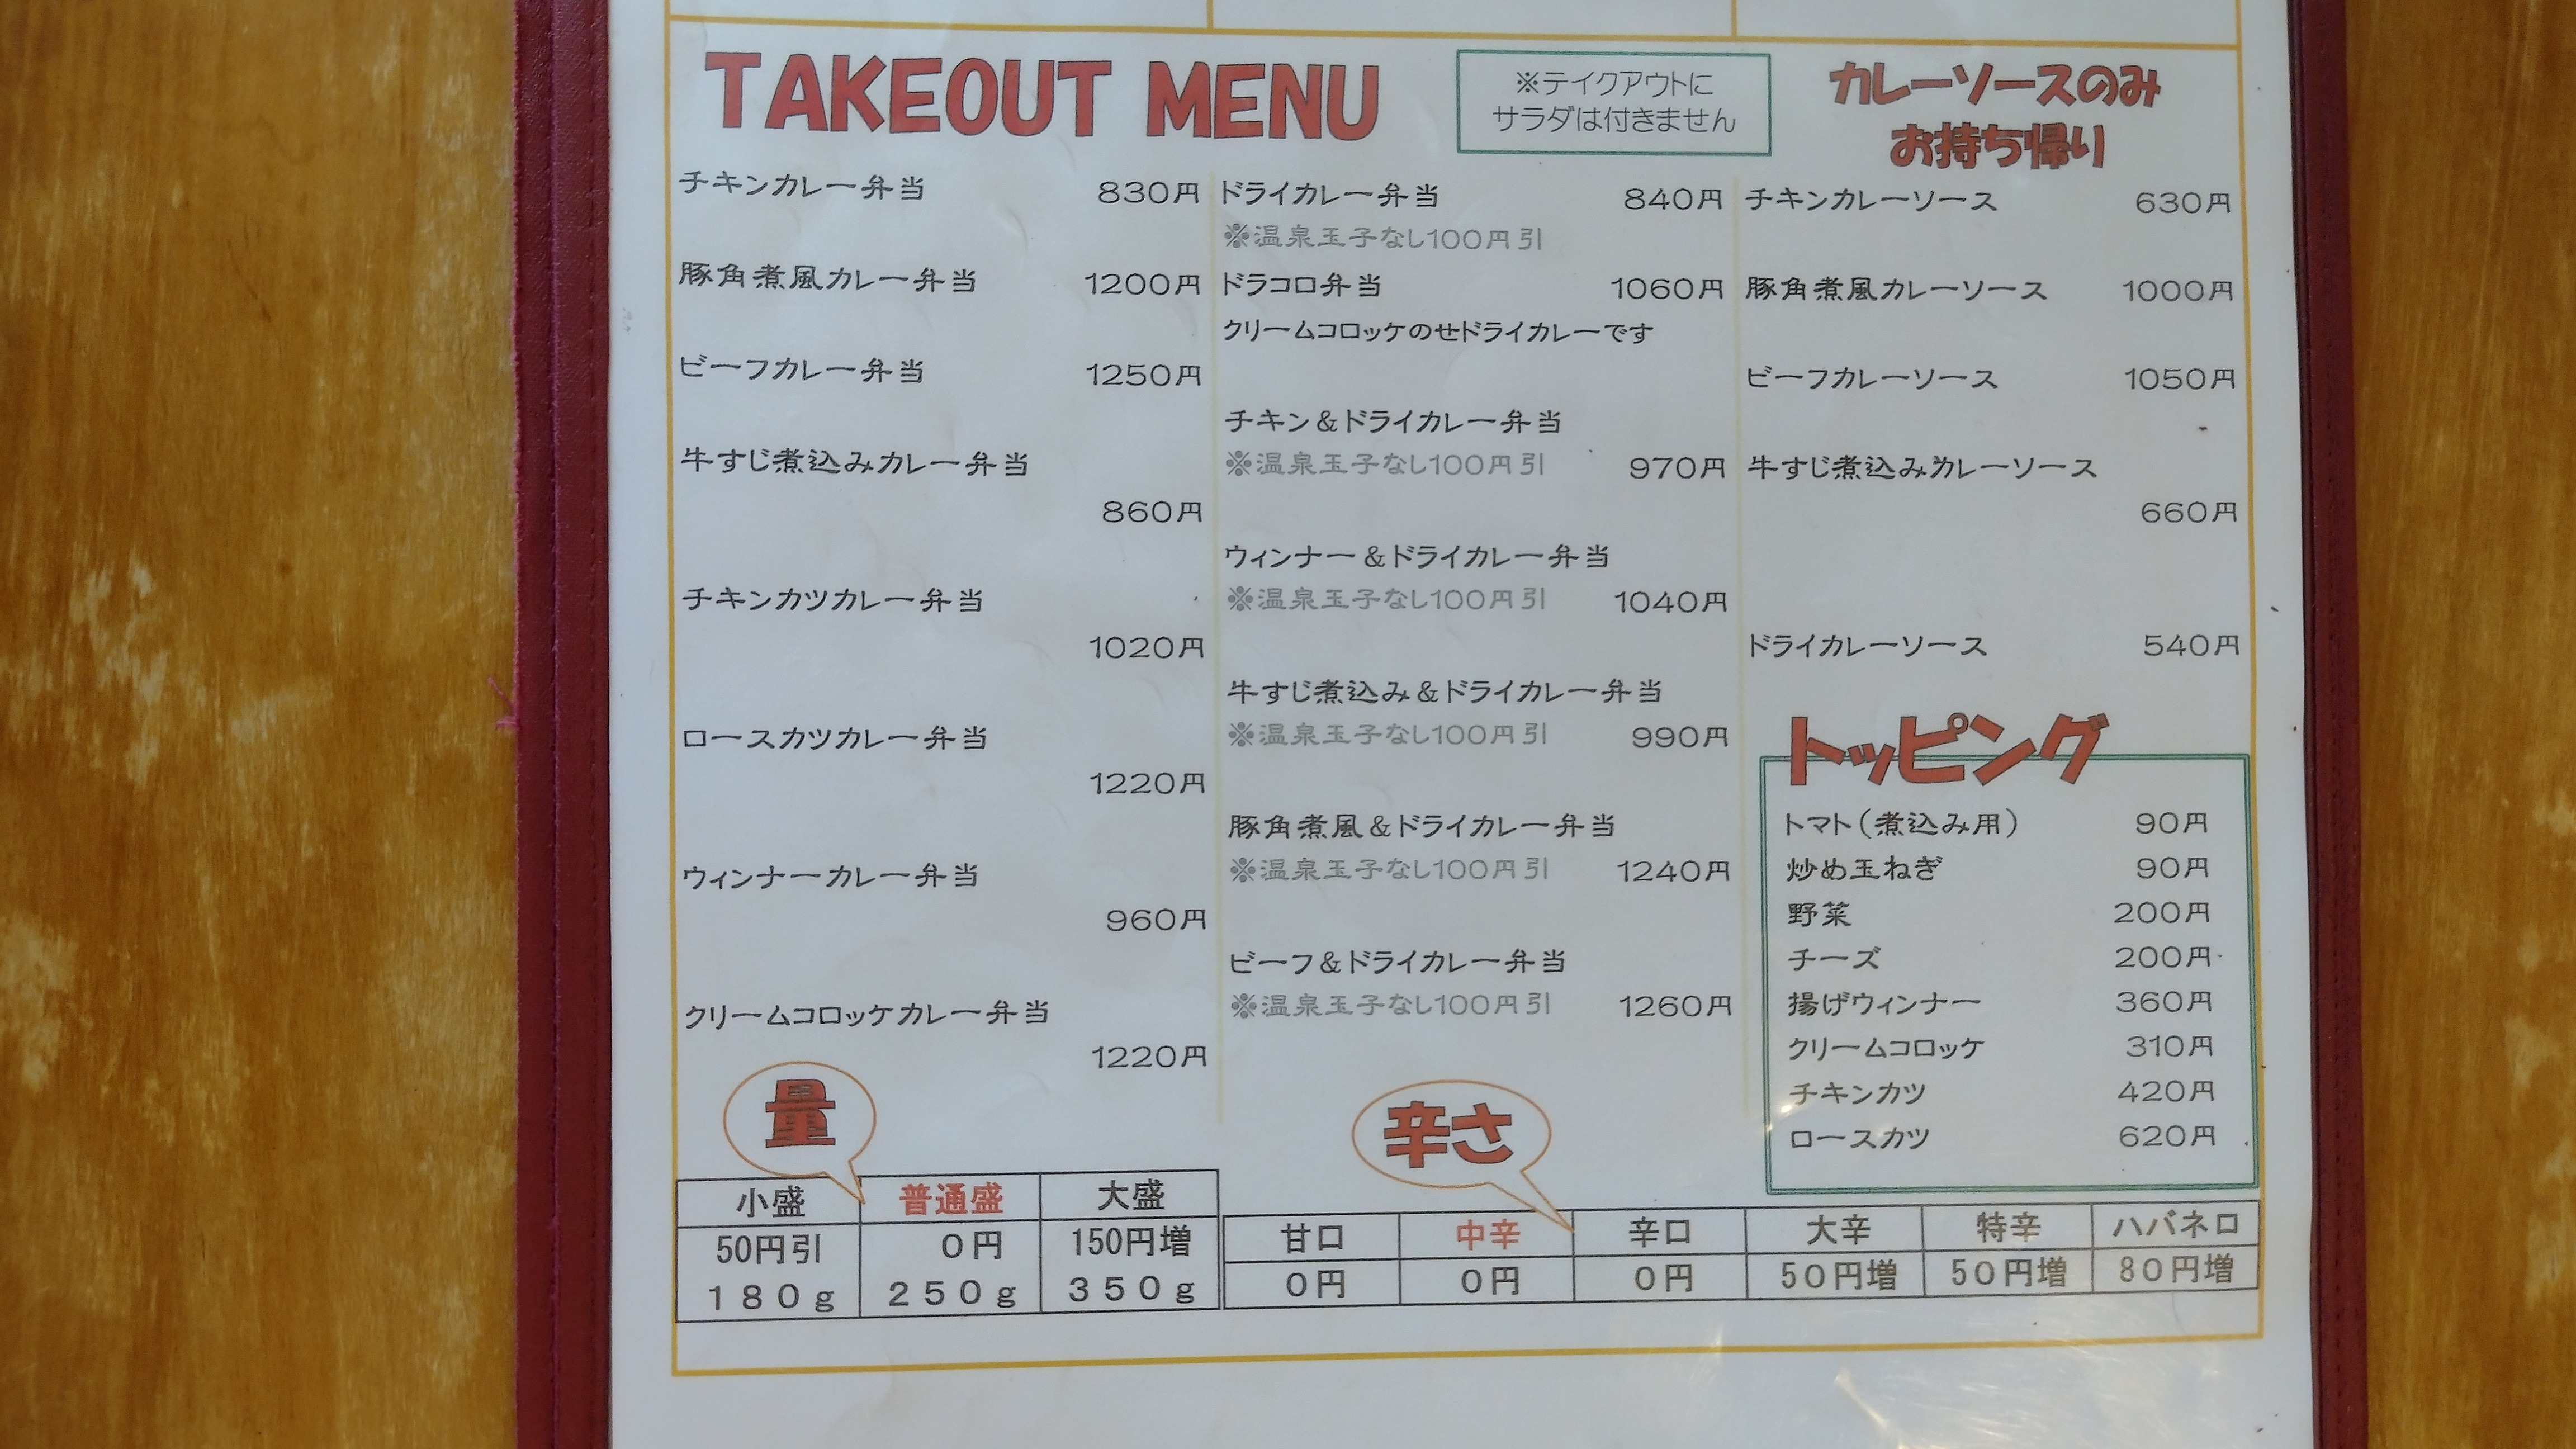 TAKEOUT MENU
※テイクアウトに
サラダは付きません
チキンカレー弁当 830円
豚角煮風カレー弁当 1200円
ビーフカレー弁当 1250円
牛すじ煮込みカレー弁当
860円
チキンカツカレー弁当
1020円
ロースカツカレー弁当
1220円
ウィンナーカレー弁当
960円
クリームコロッケカレー弁当
1220円
ドライカレー弁当 840円
※温泉玉子なし100円引
ドラコロ弁当 1060円
クリームコロッケのせドライカレーです
チキン＆ドライカレー弁当
※温泉玉子なし100円引 970円
ウィンナー＆ドライカレー弁当
※温泉玉子なし100円引 1040円
牛すじ煮込み＆ドライカレー弁当
※温泉玉子なし100円引 990円
豚角煮風＆ドライカレー弁当
※温泉玉子なし100円引 1240円
ビーフ＆ドライカレー弁当
※温泉玉子なし100円引 1260円
カレーソースのみ
お持ち帰り
チキンカレーソース 630円
豚角煮風カレーソース 1000円
ビーフカレーソース 1050円
牛すじ煮込みカレーソース
660円
ドライカレーソース 540円
トッピング
トマト（煮込み用） 90円
炒め玉ねぎ 90円
野菜 200円
チーズ 200円
揚げウィンナー 360円
クリームコロッケ 310円
チキンカツ 420円
ロースカツ 620円
量
小盛 普通盛 大盛
50円引 0円 150円増
180g 250g 350g
辛さ
甘口 中辛 辛口 大辛 特辛 ハバネロ
0円 0円 0円 50円増 50円増 80円増